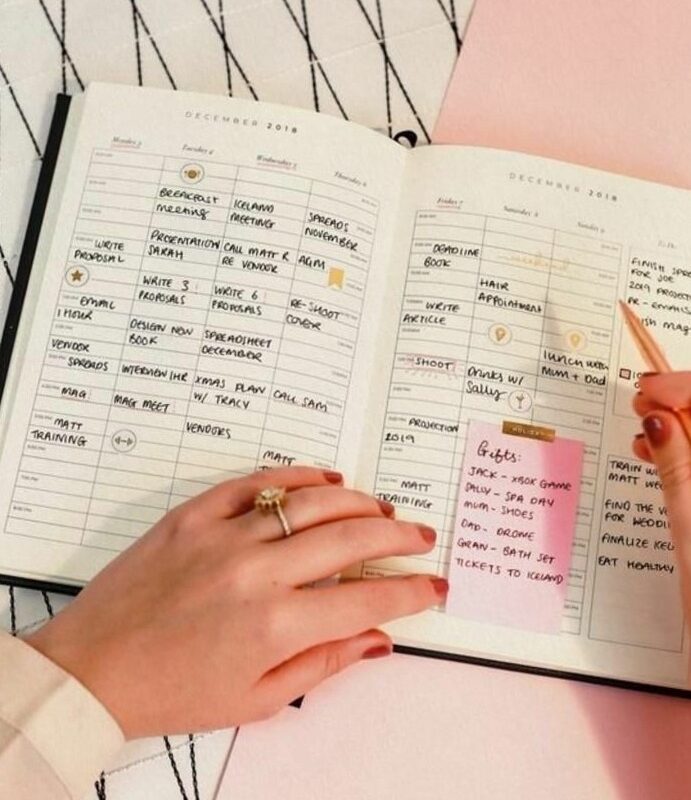 DECEMBER 2018
Monday 3
Tuesday 4
Wednesday 5
Thursday 6
WRITE
PROPOSAL
EMAIL
1 HOUR
VENDOR
SPREADS
MAG
MATT
TRAINING
BREAKFAST
meeting
PRESENTATION
SARAH
WRITE 3
PROPOSALS
DESIGN NEW
BOOK
INTERVIEW HR
MAG MEET
ICELAND
MEETING
CALL MATT R
RE VENDOR
WRITE 6
PROPOSALS
SPREADSHEET
DECEMBER
XMAS PLAN
W/ TRACY
VENDORS
SPREADS
NOVEMBER
AGM
RE-SHOOT
COVER
CALL SAM
MATT
DECEMBER 2018
Friday 7
Saturday 8
Sunday 9
DEADLINE
BOOK
WRITE
ARTICLE
SHOOT
PROJECTION
2019
MATT
TRAINING
HAIR
Appointment
Drinks W/
Sally
lunch with
Mum + Dad
HOLIDAY
Gifts:
JACK - XBOX GAME
SALLY - SPA DAY
MUM - SHOES
DAD - DROME
GRAN - BATH SET
TICKETS TO ICELAND
FINISH
FOR JOE
2019
PR - EMAILS
MAG
TRAIN
MATT
FIND THE
FOR
FINALIZE
EAT HEALTHY